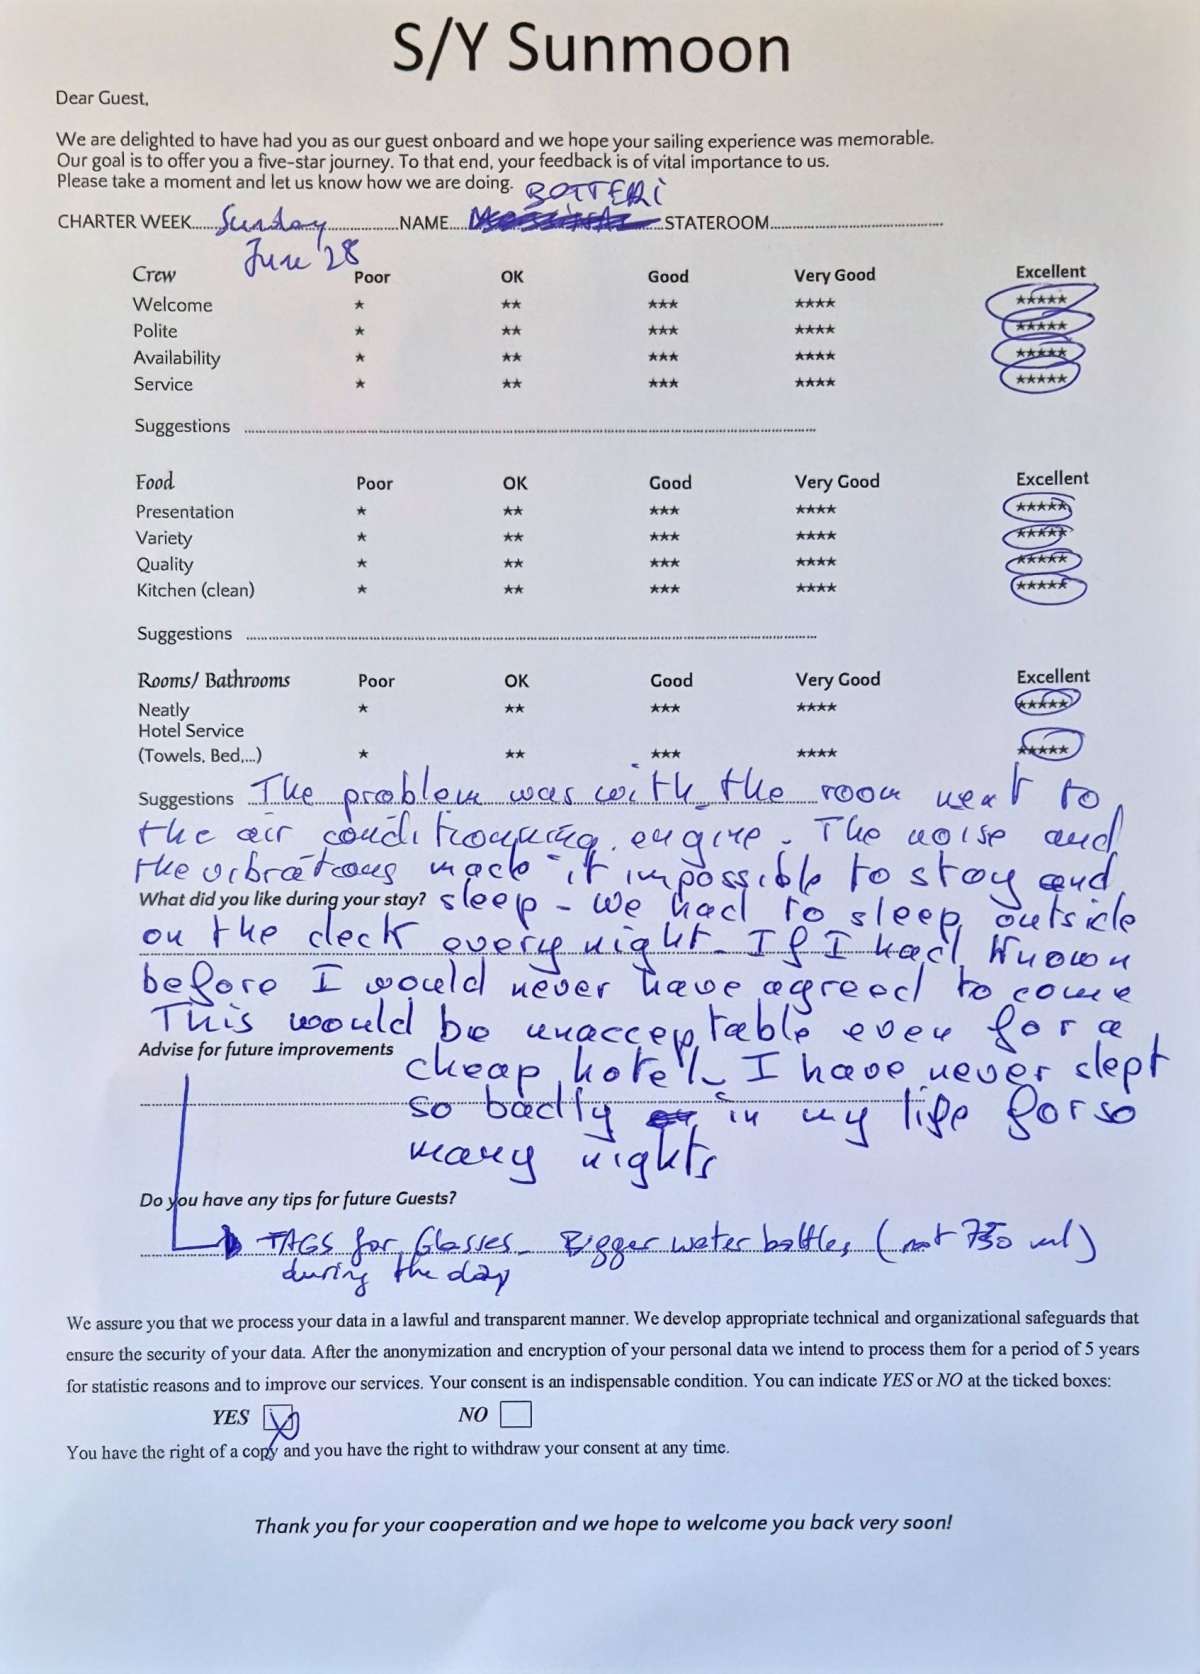 S/Y Sunmoon
Dear Guest,
We are delighted to have had you as our guest onboard and we hope your sailing experience was memorable.
Our goal is to offer you a five-star journey. To that end, your feedback is of vital importance to us.
Please take a moment and let us know how we are doing.
BOTTERI
CHARTER WEEK Sunday NAME STATEROOM
June 28
Crew Poor OK Good Very Good Excellent
Welcome ★ ★★ ★★★ ★★★★ ★★★★★
Polite ★ ★★ ★★★ ★★★★ ★★★★★
Availability ★ ★★ ★★★ ★★★★ ★★★★★
Service ★ ★★ ★★★ ★★★★ ★★★★★
Suggestions
Food Poor OK Good Very Good Excellent
Presentation ★ ★★ ★★★ ★★★★ ★★★★★
Variety ★ ★★ ★★★ ★★★★ ★★★★★
Quality ★ ★★ ★★★ ★★★★ ★★★★★
Kitchen (clean) ★ ★★ ★★★ ★★★★ ★★★★★
Suggestions
Rooms/ Bathrooms Poor OK Good Very Good Excellent
Neatly ★ ★★ ★★★ ★★★★ ★★★★★
Hotel Service
(Towels, Bed,...) ★ ★★ ★★★ ★★★★ ★★★★★
Suggestions The problem was with the room next to
the air conditionning engine. The noise and
the vibrations made it impossible to stay and
What did you like during your stay? sleep - we had to sleep outside
on the deck every night. If I had known
before I would never have agreed to come
This would be unacceptable even for a
Advise for future improvements
cheap hotel. I have never slept
so badly in my life for so
many nights
Do you have any tips for future Guests?
TAGS for Glasses - Bigger water bottles (not 750 ml)
during the day
We assure you that we process your data in a lawful and transparent manner. We develop appropriate technical and organizational safeguards that
ensure the security of your data. After the anonymization and encryption of your personal data we intend to process them for a period of 5 years
for statistic reasons and to improve our services. Your consent is an indispensable condition. You can indicate YES or NO at the ticked boxes:
YES NO
You have the right of a copy and you have the right to withdraw your consent at any time.
Thank you for your cooperation and we hope to welcome you back very soon!